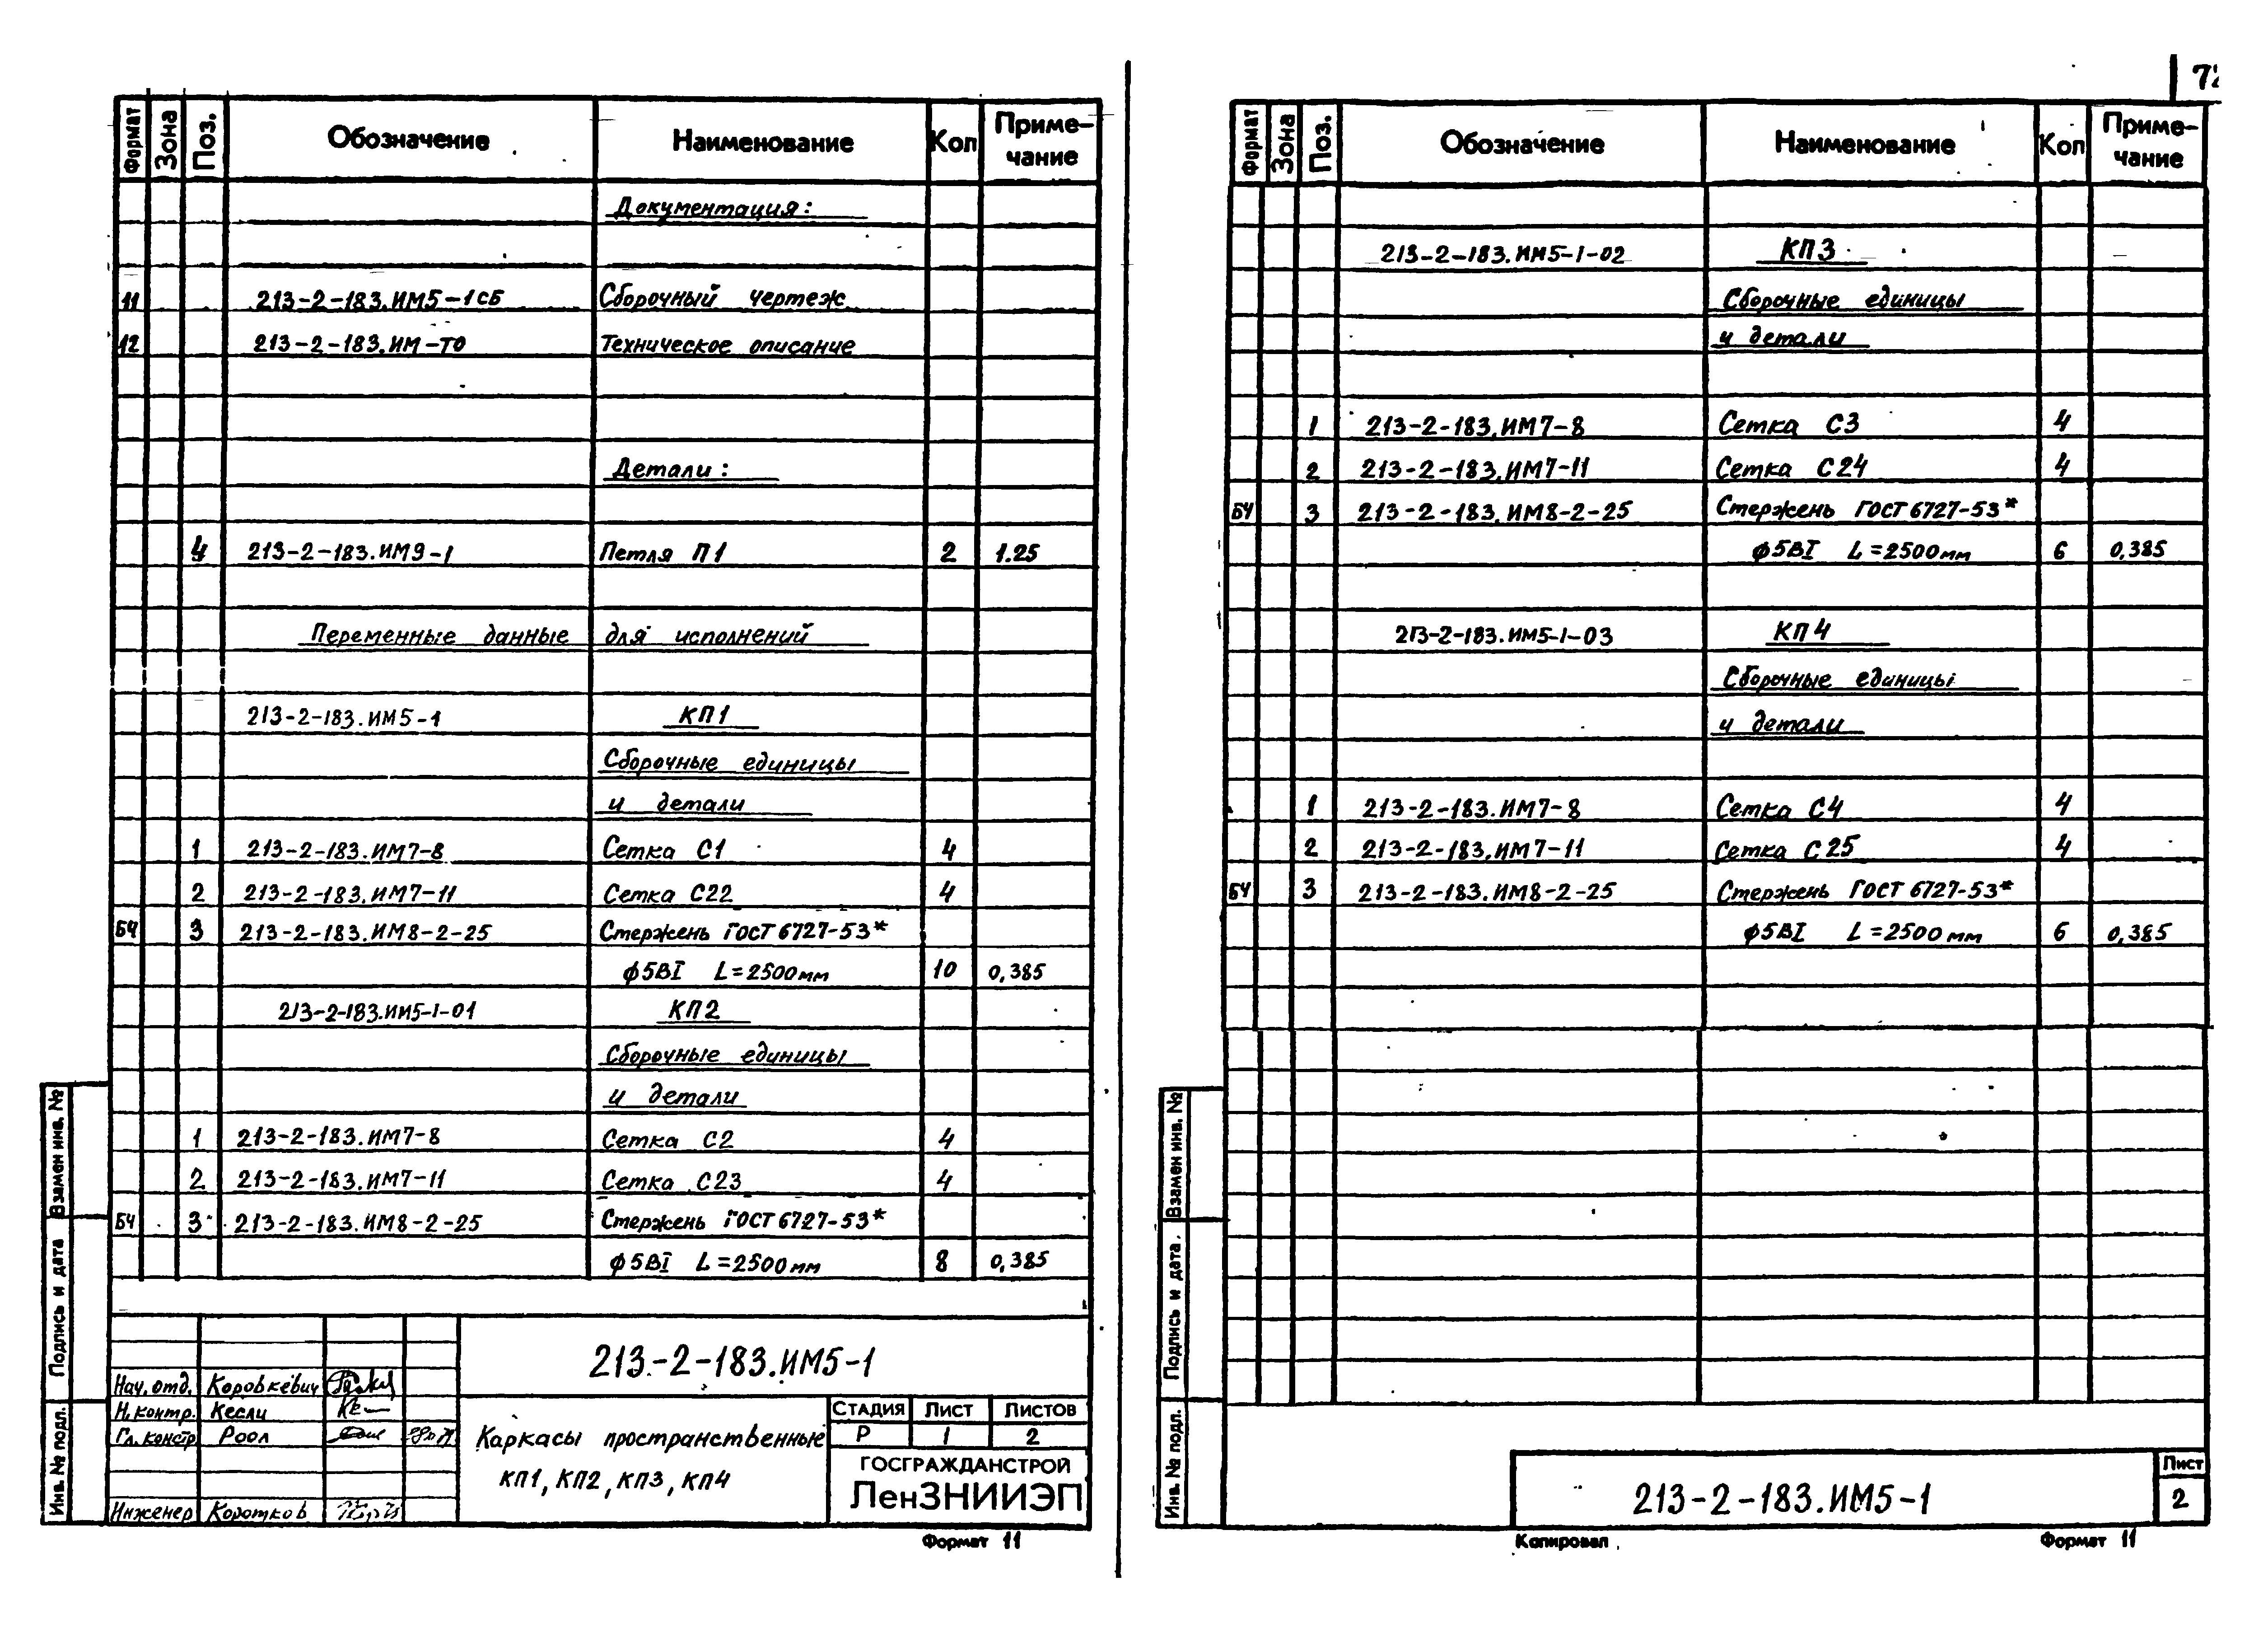 Формат Зона Поз. Обозначение Наименование Кол Приме-чание
Документация:
11 213-2-183.ИМ5-1СБ Сборочный чертеж
12 213-2-183.ИМ-ТО Техническое описание
Детали:
4 213-2-183.ИМ9-1 Петля П1 2 1.25
Переменные данные для исполнений
213-2-183.ИМ5-1 КП1
Сборочные единицы
и детали
1 213-2-183.ИМ7-8 Сетка С1 4
2 213-2-183.ИМ7-11 Сетка С22 4
БЧ 3 213-2-183.ИМ8-2-25 Стержень ГОСТ 6727-53*
ф5ВI L=2500мм 10 0,385
213-2-183.ИМ5-1-01 КП2
Сборочные единицы
и детали
1 213-2-183.ИМ7-8 Сетка С2 4
2 213-2-183.ИМ7-11 Сетка С23 4
БЧ 3 213-2-183.ИМ8-2-25 Стержень ГОСТ 6727-53*
ф5ВI L=2500мм 8 0,385
Взамен инв. №
Подпись и дата
Инв. № подл.
213-2-183.ИМ5-1
Нач. отд. Коровкевич
Н. контр. Кесли
Гл. констр Роол
Инженер Коротков
Каркасы пространственные
КП1, КП2, КП3, КП4
Стадия Лист Листов
Р 1 2
ГОСГРАЖДАНСТРОЙ
ЛенЗНИИЭП
Формат 11
72
Формат Зона Поз. Обозначение Наименование Кол Приме-чание
213-2-183.ИМ5-1-02 КП3
Сборочные единицы
и детали
1 213-2-183.ИМ7-8 Сетка С3 4
2 213-2-183.ИМ7-11 Сетка С24 4
БЧ 3 213-2-183.ИМ8-2-25 Стержень ГОСТ 6727-53*
ф5ВI L=2500мм 6 0,385
213-2-183.ИМ5-1-03 КП4
Сборочные единицы
и детали
1 213-2-183.ИМ7-8 Сетка С4 4
2 213-2-183.ИМ7-11 Сетка С25 4
БЧ 3 213-2-183.ИМ8-2-25 Стержень ГОСТ 6727-53*
ф5ВI L=2500мм 6 0,385
Взамен инв. №
Подпись и дата.
Инв. № подл.
213-2-183.ИМ5-1
Лист
2
Копировал
Формат 11